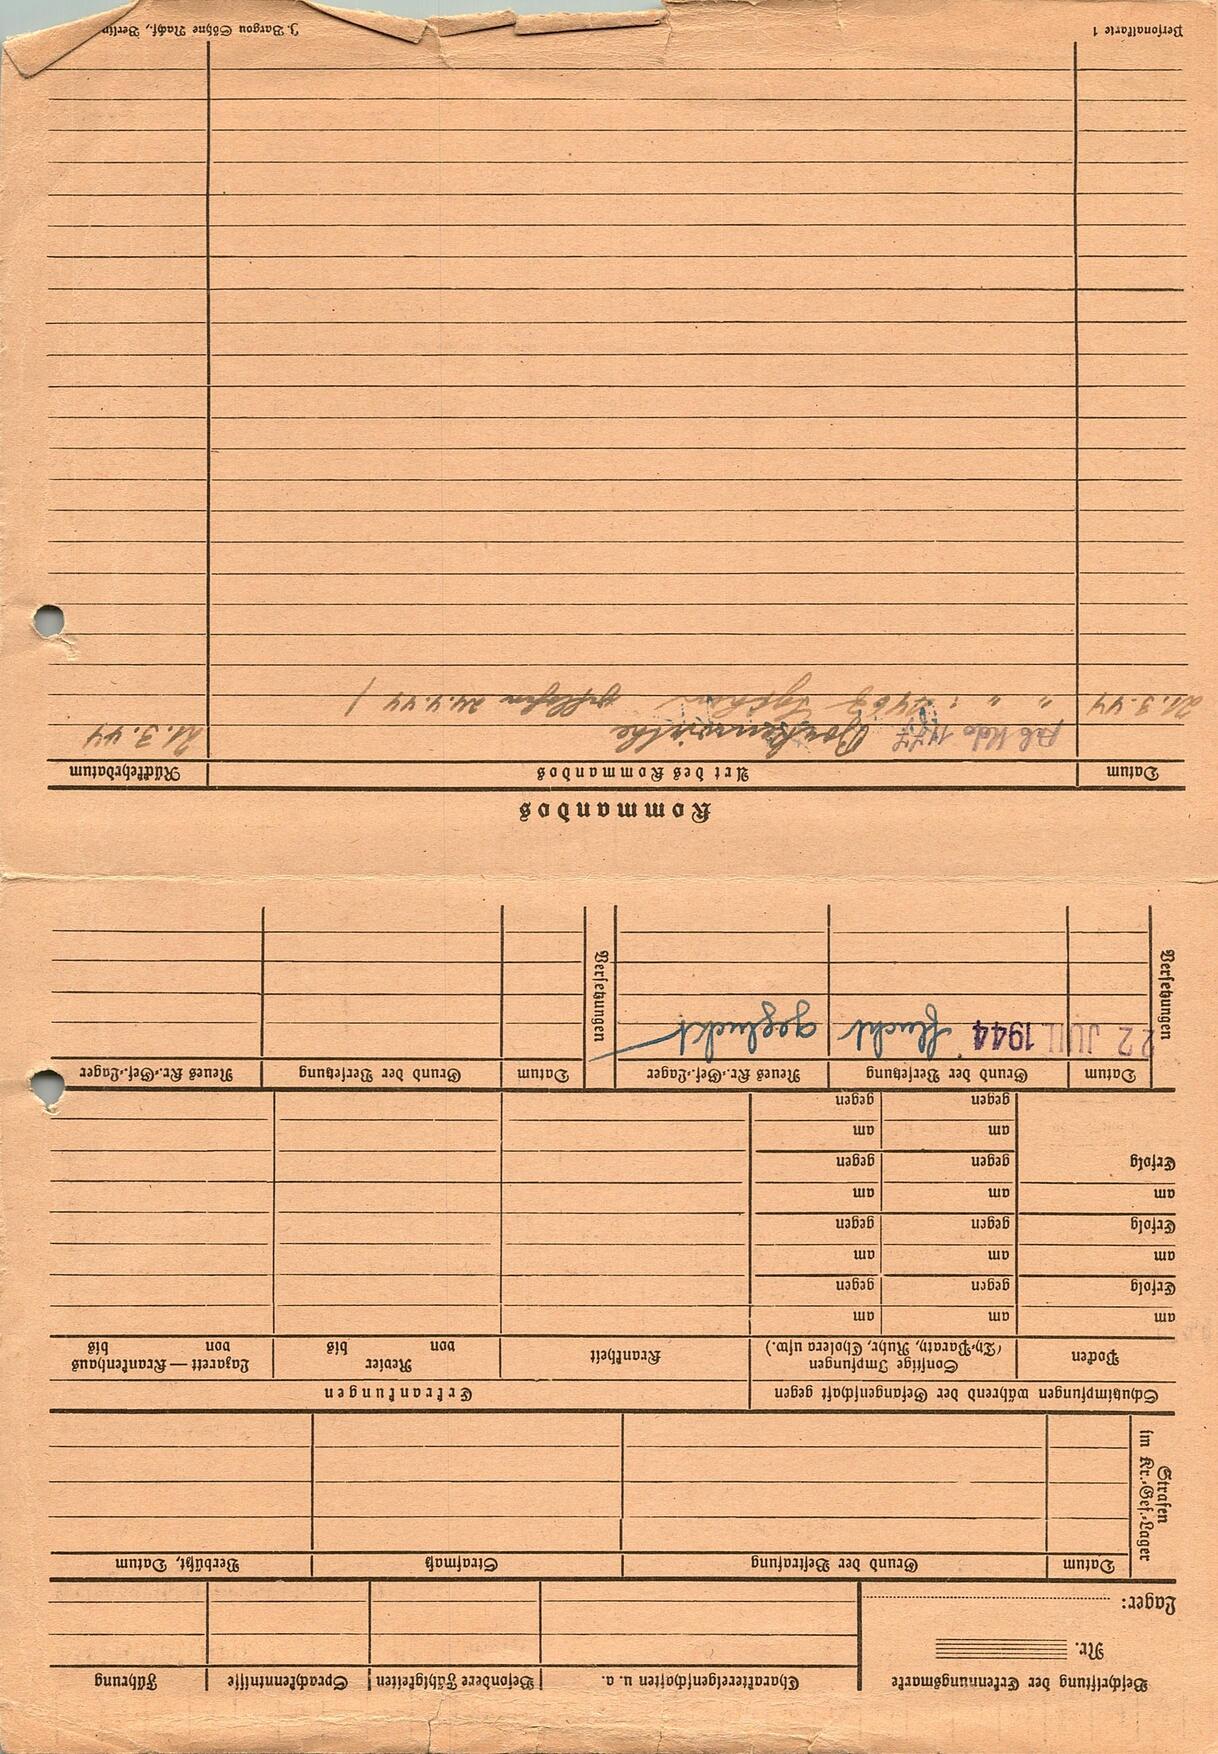 Beschriftung der Erkennungsmarke
Nr.
Lager:
Charaktereigenschaften u. a.
Besondere Fähigkeiten
Sprachkenntnisse
Führung
Strafen
im Kr.-Gef.-Lager
Datum
Grund der Bestrafung
Strafmaß
Verbüßt, Datum
Schutzimpfungen während der Gefangenschaft gegen
Erkrankungen
Pocken
Sonstige Impfungen
(Ty.-Paraty., Ruhr, Cholera usw.)
Krankheit
Revier
von bis
Lazarett — Krankenhaus
von bis
am am am
Erfolg gegen gegen
am am am
Erfolg gegen gegen
am am am
Erfolg gegen gegen
am am
gegen gegen
Versetzungen
Datum
Grund der Versetzung
Neues Kr.-Gef.-Lager
Versetzungen
Datum
Grund der Versetzung
Neues Kr.-Gef.-Lager
22 JULI 1944 flucht geglückt
Kommandos
Datum
Art des Kommandos
Rückkehrdatum
Arb Kdo 1177 21.3.44
21.3.44 " " geflohen 24.4.44
Personalkarte 1
J. Bargou Söhne Nachf., Berlin